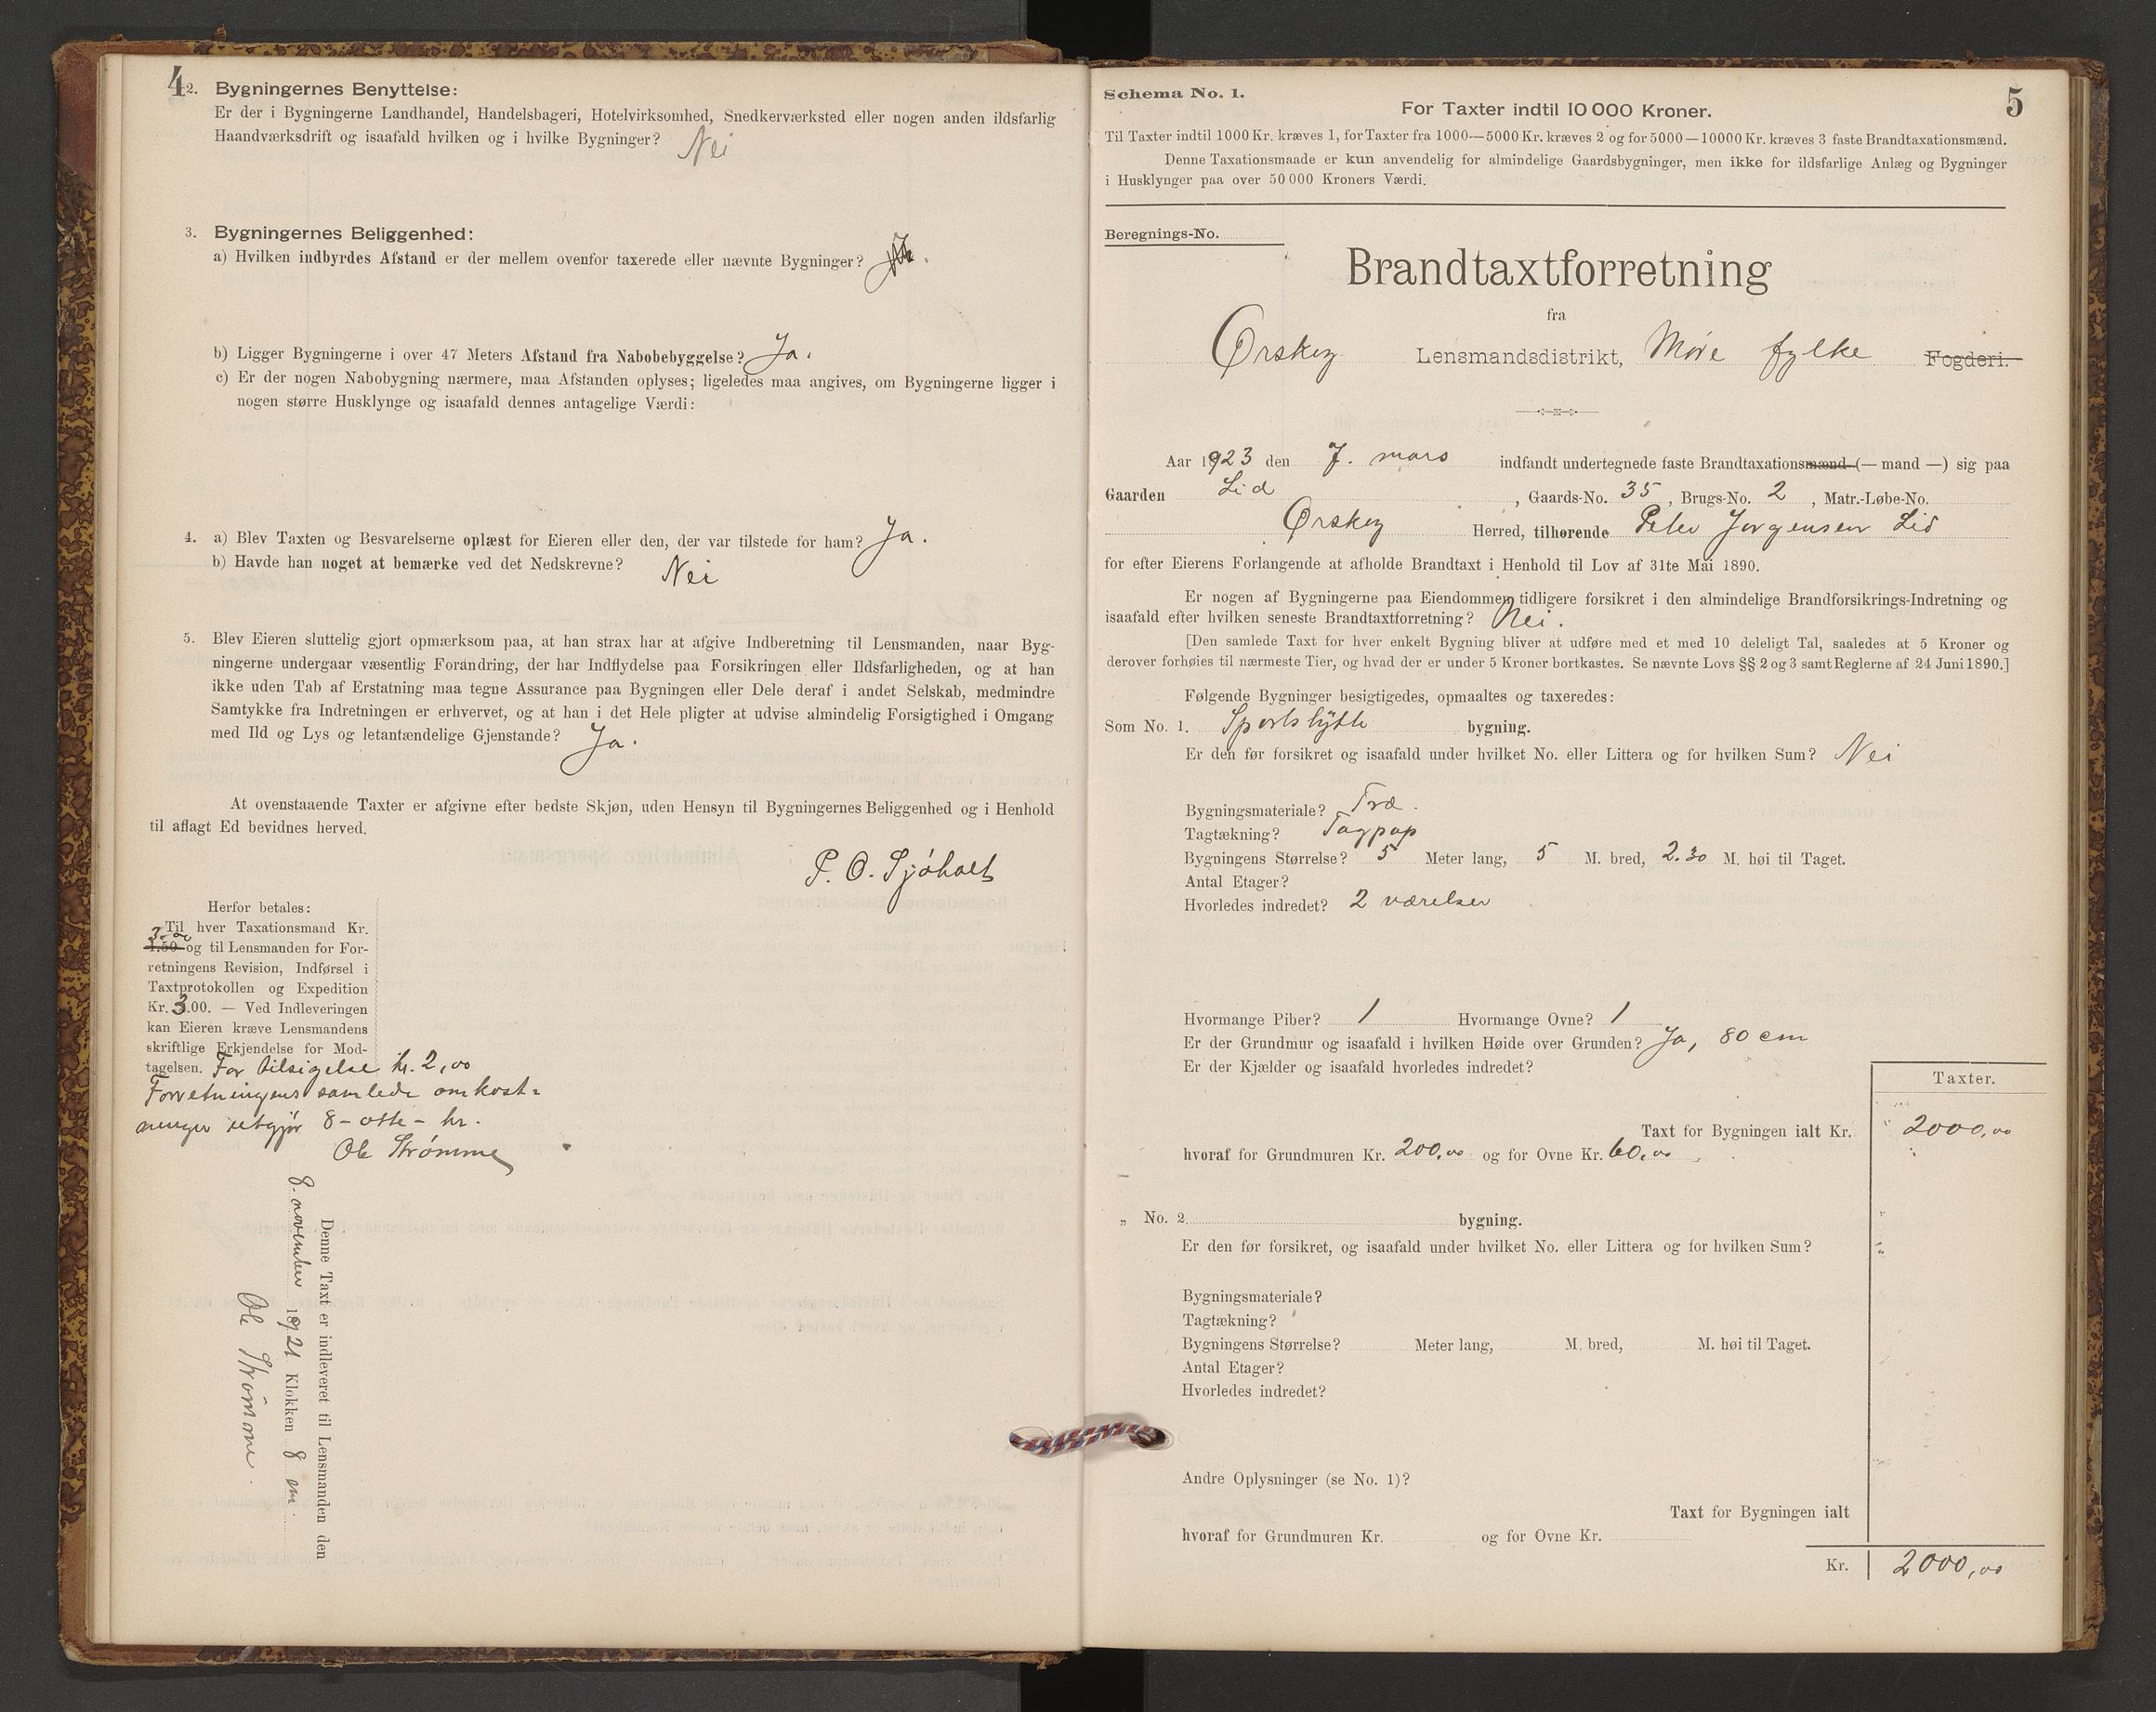 4
2. Bygningernes Benyttelse:
Er der i Bygningerne Landhandel, Handelsbageri, Hotelvirksomhed, Snedkerværksted eller nogen anden ildsfarlig
Haandværksdrift og isaafald hvilken og i hvilke Bygninger? Nei
3. Bygningernes Beliggenhed:
a) Hvilken indbyrdes Afstand er der mellem ovenfor taxerede eller nævnte Bygninger?
b) Ligger Bygningerne i over 47 Meters Afstand fra Nabobebyggelse? Ja.
c) Er der nogen Nabobygning nærmere, maa Afstanden oplyses; ligeledes maa angives, om Bygningerne ligger i
nogen større Husklynge og isaafald dennes antagelige Værdi:
4. a) Blev Taxten og Besvarelserne oplæst for Eieren eller den, der var tilstede for ham? Ja.
b) Havde han noget at bemærke ved det Nedskrevne? Nei
5. Blev Eieren sluttelig gjort opmærksom paa, at han strax har at afgive Indberetning til Lensmanden, naar Byg-
ningerne undergaar væsentlig Forandring, der har Indflydelse paa Forsikringen eller Ildsfarligheden, og at han
ikke uden Tab af Erstatning maa tegne Assurance paa Bygningen eller Dele deraf i andet Selskab, medmindre
Samtykke fra Indretningen er erhvervet, og at han i det Hele pligter at udvise almindelig Forsigtighed i Omgang
med Ild og Lys og letantændelige Gjenstande? Ja.
At ovenstaaende Taxter er afgivne efter bedste Skjøn, uden Hensyn til Bygningernes Beliggenhed og i Henhold
til aflagt Ed bevidnes herved.
P. O. Sjøholt
Herfor betales:
Til hver Taxationsmand Kr.
3-00
1.50 og til Lensmanden for For-
retningens Revision, Indførsel i
Taxtprotokollen og Expedition
Kr. 3.00. — Ved Indleveringen
kan Eieren kræve Lensmandens
skriftlige Erkjendelse for Mod-
tagelsen. For tilsigelse kr. 2,00
Forretningens samlede omkost=
ninger utgjør 8 - otte - kr.
Ole Strømme
Denne Taxt er indleveret til Lensmanden den
8. november 1921 Klokken 8 em.
Ole Strømme.
5
Schema No. 1.
For Taxter indtil 10 000 Kroner.
Til Taxter indtil 1000 Kr. kræves 1, for Taxter fra 1000—5000 Kr. kræves 2 og for 5000—10000 Kr. kræves 3 faste Brandtaxationsmænd.
Denne Taxationsmaade er kun anvendelig for almindelige Gaardsbygninger, men ikke for ildsfarlige Anlæg og Bygninger
i Husklynger paa over 50 000 Kroners Værdi.
Beregnings-No.
Brandtaxtforretning
fra
Ørskog Lensmandsdistrikt, Møre fylke Fogderi.
Aar 1923 den 7. mars indfandt undertegnede faste Brandtaxationsmænd (— mand —) sig paa
Gaarden Lid, Gaards-No. 35, Brugs-No. 2, Matr.-Løbe-No.
Ørskog Herred, tilhørende Peter Jørgensen Lid
for efter Eierens Forlangende at afholde Brandtaxt i Henhold til Lov af 31te Mai 1890.
Er nogen af Bygningerne paa Eiendommen tidligere forsikret i den almindelige Brandforsikrings-Indretning og
isaafald efter hvilken seneste Brandtaxtforretning? Nei.
[Den samlede Taxt for hver enkelt Bygning bliver at udføre med et med 10 deleligt Tal, saaledes at 5 Kroner og
derover forhøies til nærmeste Tier, og hvad der er under 5 Kroner bortkastes. Se nævnte Lovs §§ 2 og 3 samt Reglerne af 24 Juni 1890.]
Følgende Bygninger besigtigedes, opmaaltes og taxeredes:
Som No. 1. Sportshytte bygning.
Er den før forsikret og isaafald under hvilket No. eller Littera og for hvilken Sum? Nei
Bygningsmateriale? Træ.
Tagtækning? Tagpap
Bygningens Størrelse? 5 Meter lang, 5 M. bred, 2.30 M. høi til Taget.
Antal Etager?
Hvorledes indredet? 2 værelser
Hvormange Piber? 1 Hvormange Ovne? 1
Er der Grundmur og isaafald i hvilken Høide over Grunden? Ja, 80 cm
Er der Kjælder og isaafald hvorledes indredet?
Taxter.
Taxt for Bygningen ialt Kr. 2000,00
hvoraf for Grundmuren Kr. 200,00 og for Ovne Kr. 60,00
„ No. 2. bygning.
Er den før forsikret, og isaafald under hvilket No. eller Littera og for hvilken Sum?
Bygningsmateriale?
Tagtækning?
Bygningens Størrelse? Meter lang, M. bred, M. høi til Taget.
Antal Etager?
Hvorledes indredet?
Andre Oplysninger (se No. 1)?
Taxt for Bygningen ialt
hvoraf for Grundmuren Kr. og for Ovne Kr.
Kr. 2000,00